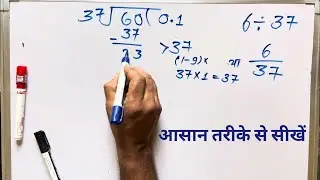 37)60(0.1
- 37
23
>37
(1-9)x
37×1=37
6÷37
या
6
37
आसान तरीके से सीखें